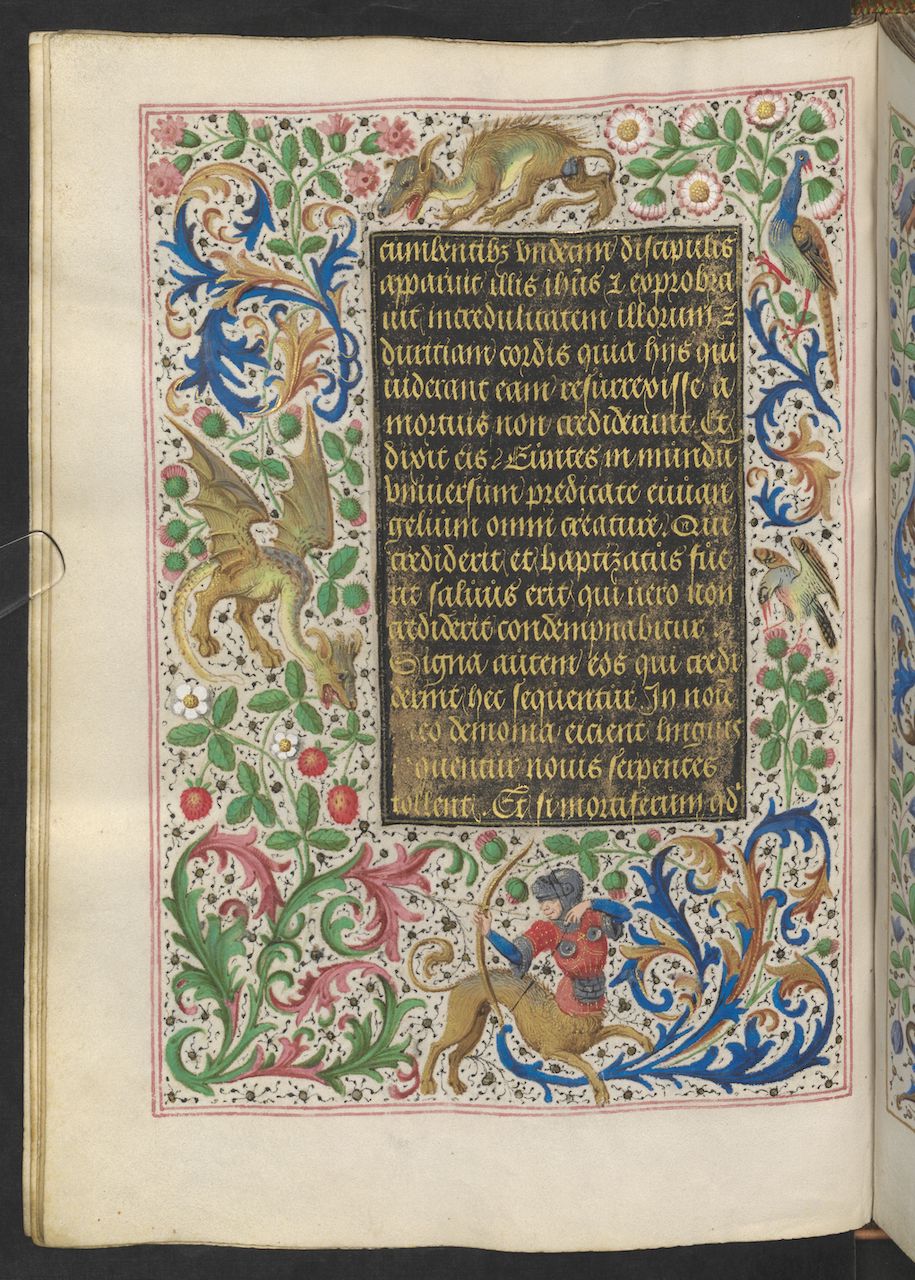 cumbentibꝫ vndecim discipulis
apparuit illis ihūs ⁊ exprobra
uit incredulitatem illorum ⁊
duritiam cordis quia hijs qui
uiderant eum resurrexisse a
mortuis non crediderunt. Et
dixit eis. Euntes in mundū
vniuersum predicate euuan
gelium omni creature. Qui
crediderit et baptizatus fue
rit saluus erit qui uero non
crediderit condempnabitur
Signa autem eos qui credi
derint hec sequentur In noīe
meo demonia eicient linguis
loquentur nouis serpentes
tollent. Et si mortiferum qd'